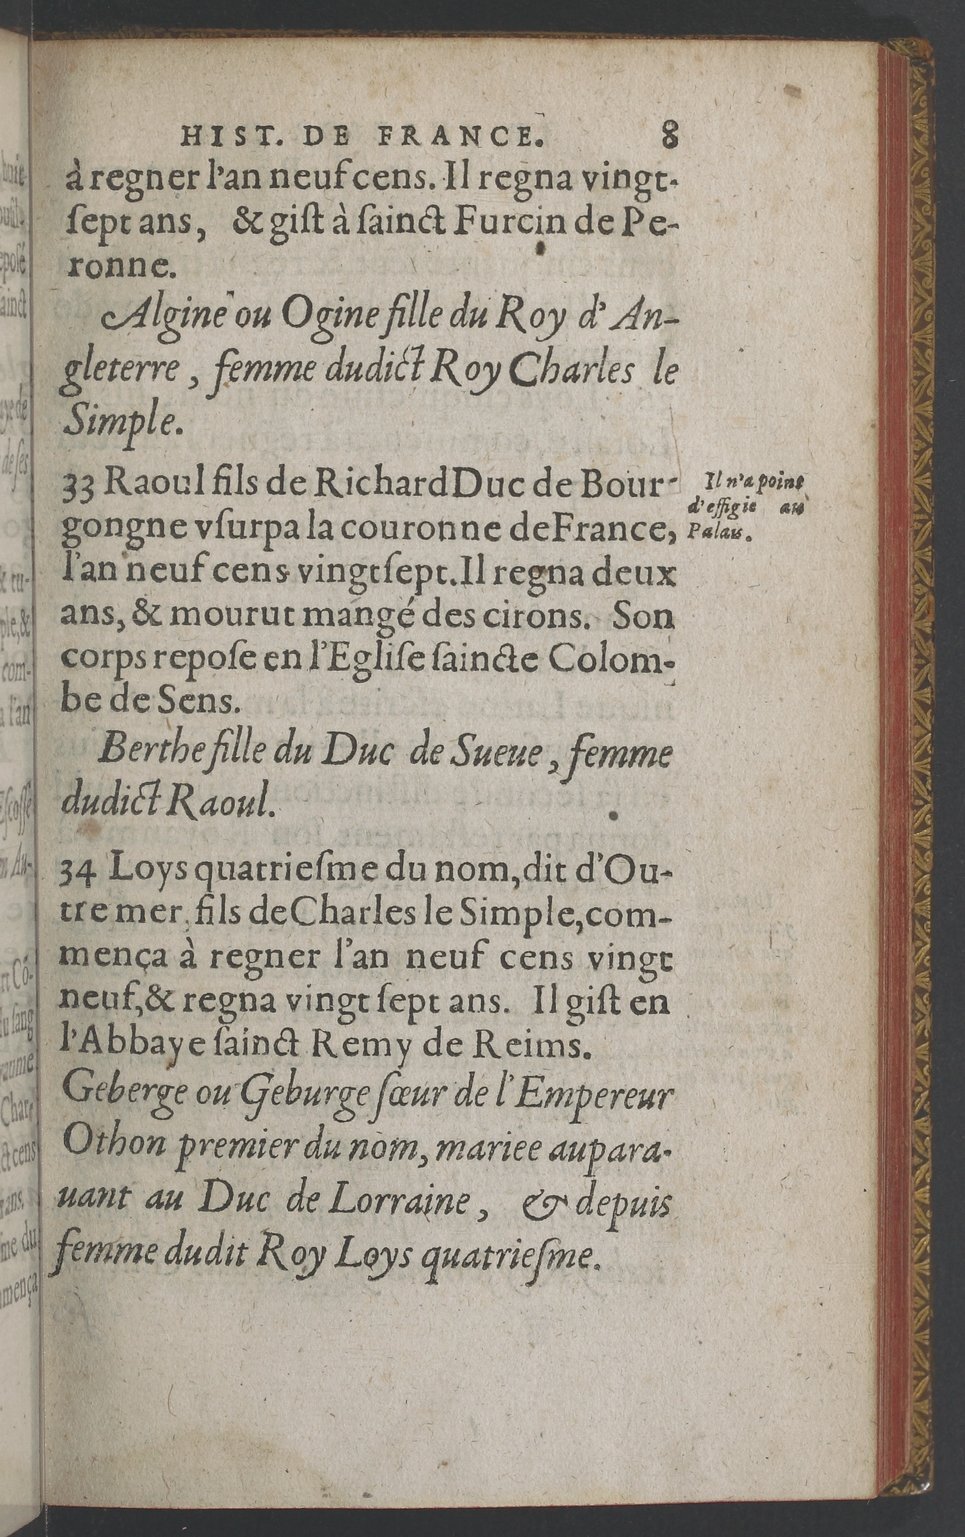 HIST. DE FRANCE. 8
à regner l'an neuf cens. Il regna vingt-
ſept ans, & giſt à ſainct Furcin de Pe-
ronne.
Algine ou Ogine fille du Roy d'An-
gleterre, femme dudict Roy Charles le
Simple.
33 Raoul fils de Richard Duc de Bour-
gongne vſurpa la couronne de France,
l'an neuf cens vingtſept. Il regna deux
ans, & mourut mangé des cirons. Son
corps repoſe en l'Egliſe ſaincte Colom-
be de Sens.
Il n'a point
d'effigie au
Palais.
Berthe fille du Duc de Sueue, femme
dudict Raoul.
34 Loys quatrieſme du nom, dit d'Ou-
tre mer, fils de Charles le Simple, com-
mença à regner l'an neuf cens vingt
neuf, & regna vingt ſept ans. Il giſt en
l'Abbaye ſainct Remy de Reims.
Geberge ou Geburge ſœur de l'Empereur
Othon premier du nom, mariee aupara-
uant au Duc de Lorraine, & depuis
femme dudit Roy Loys quatrieſme.